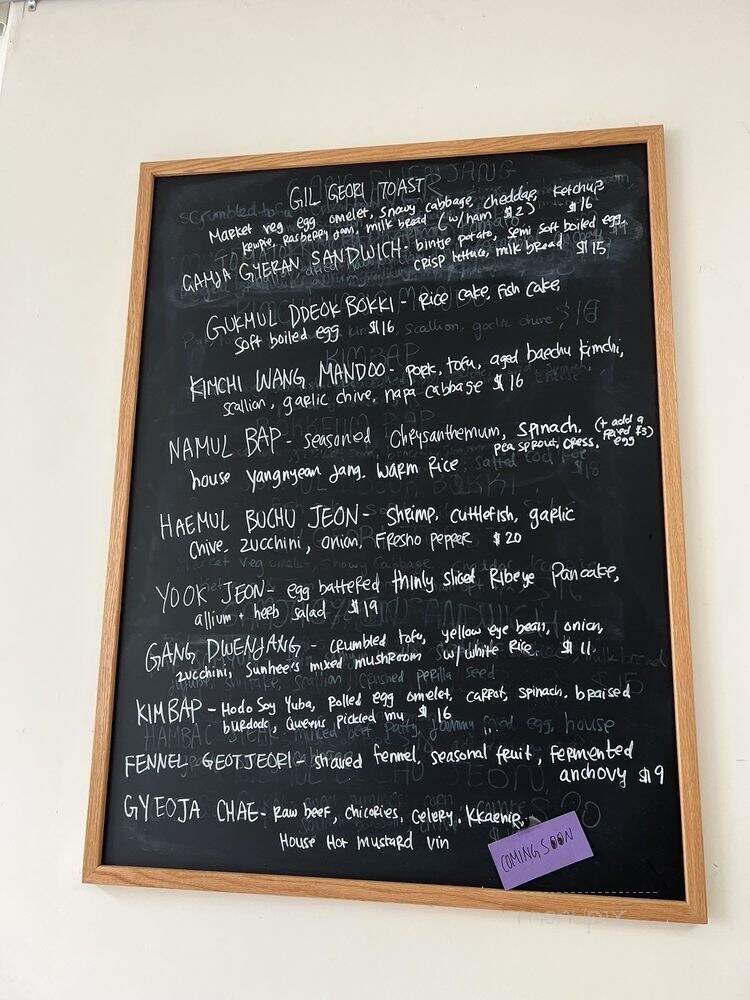 GIL GEORI TOAST
Market veg egg omelet, snowy cabbage, cheddar, ketchup
kewpie, Raspberry jam, milk bread (w/ham $2) $16
GAMJA GYERAN SANDWICH- bintje potato, semi soft boiled egg,
crisp lettuce, milk bread $15
GUKMUL DDEOK BOKKI - Rice cake, fish cake,
soft boiled egg $16
KIMCHI WANG MANDOO- pork, tofu, aged baechu kimchi,
scallion, garlic chive, napa cabbage $16
NAMUL BAP - seasoned chrysanthemum, spinach, (+ add a
pea sprout, cress, fried egg $3)
house yangnyeom jang, warm Rice
HAEMUL BUCHU JEON- shrimp, cuttlefish, garlic
chive, zucchini, onion, Fresno pepper $20
YOOK JEON- egg battered thinly sliced Ribeye Pancake,
allium + herb salad $19
GANG DWENJANG - crumbled tofu, yellow eye bean, onion,
zucchini, Sunhee's mixed mushroom w/white Rice. $11
KIMBAP - Hodo Soy Yuba, Rolled egg omelet, carrot, spinach, braised
burdock, Queens pickled mu $16
FENNEL GEOTJEORI - shaved fennel, seasonal fruit, fermented
anchovy $19
GYEOJA CHAE- Raw beef, chicories, celery,
House Hot mustard vin
COMING SOON